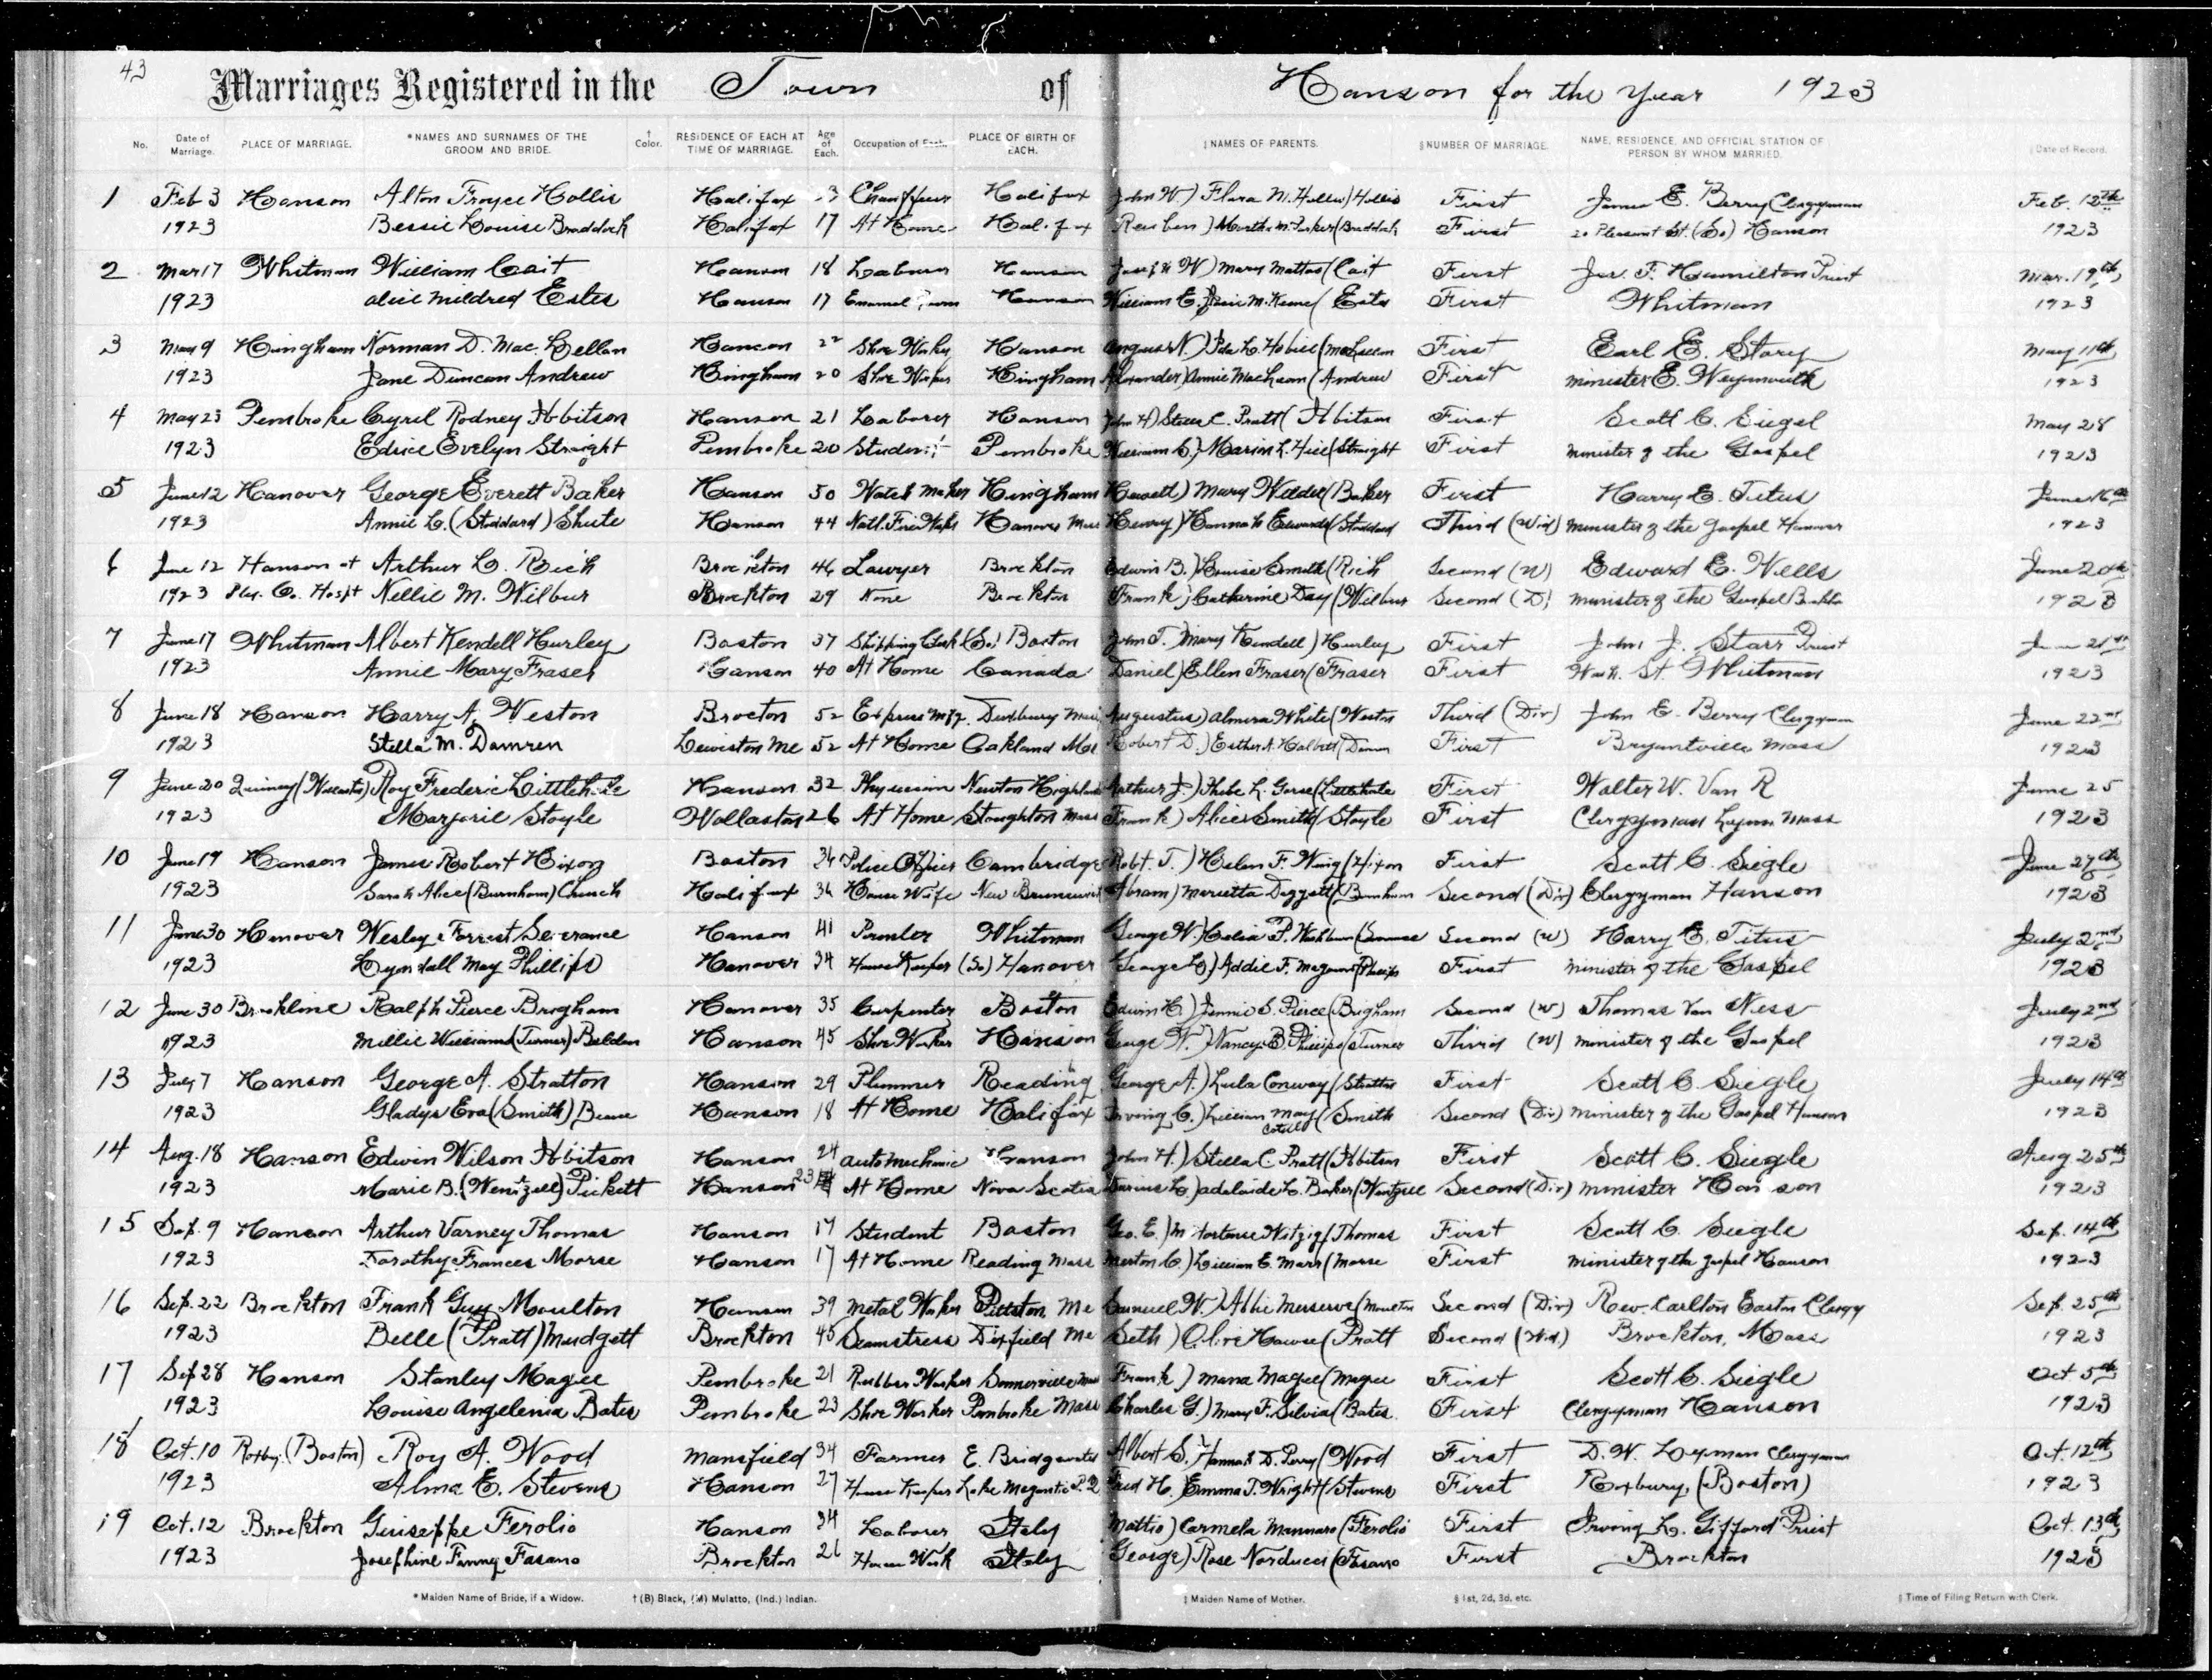 43
Marriages Registered in the Town of Hanson for the Year 1923
No. Date of Marriage. PLACE OF MARRIAGE. *NAMES AND SURNAMES OF THE GROOM AND BRIDE. † Color. RESIDENCE OF EACH AT TIME OF MARRIAGE. Age of Each. Occupation of Each. PLACE OF BIRTH OF EACH. ‡NAMES OF PARENTS. §NUMBER OF MARRIAGE. NAME, RESIDENCE, AND OFFICIAL STATION OF PERSON BY WHOM MARRIED. ‖Date of Record.
1 Feb 3 Hanson Alton Troyce Hollis Halifax Chauffeur Halifax John W.) Flora Hollis First James E. Berry Clergyman Feb. 12th
1923 Bessie Louise Braddock Halifax 17 At Home Halifax Reuben) Martha M. Parker (Braddock First 20 Pleasant St. (So) Hanson 1923
2 Mar 17 Whitman William Cait Hanson 18 Laborer Hanson Joseph W) Mary Mattos (Cait First Jas. F. Hamilton Priest Mar. 19th
1923 Alice Mildred Estes Hanson 17 Hanson William E. (Estes First Whitman 1923
3 May 9 Hingham Norman D. Mac Lellan Hanson 22 Shoe Worker Hanson Angus N.) Ida L. First Earl E. Story May 11th
1923 Jane Duncan Andrew Hingham 20 Shoe Worker Hingham Alexander) Annie (Andrew First Minister E. Weymouth 1923
4 May 23 Pembroke Cyril Rodney Ibbitson Hanson 21 Laborer Hanson John H) Stella C. Pratt (Ibbitson First Scott C. Siegel May 28
1923 Edrice Evelyn Straight Pembroke 20 Student Pembroke William C.) Marion L. Hill (Straight First Minister of the Gospel 1923
5 June 12 Hanover George Everett Baker Hanson 50 Watch Maker Hingham Howell) Mary Wilder (Baker First Harry E. Titus June 16th
1923 Annie L. (Stoddard) Shute Hanson 44 Hanover Mass Henry) Hannah Edwards (Stoddard Third (Wid) Minister of the Gospel Hanover 1923
6 June 12 Hanson at Arthur L. Rich Brockton 46 Lawyer Brockton Edwin B.) Louise Smith (Rich Second (W) Edward E. Wells June 20th
1923 Ply. Co. Hospt Nellie M. Wilbur Brockton 29 None Brockton Frank) Catherine Day (Wilbur Second (D) Minister of the Gospel Brockton 1923
7 June 17 Whitman Albert Kendell Hurley Boston 37 Shipping Clerk (So) Boston John T. Mary Kendell) Hurley First John J. Starr Priest June 21st
1923 Annie Mary Fraser Hanson 40 At Home Canada Daniel) Ellen Fraser (Fraser First Wash. St. Whitman 1923
8 June 18 Hanson Harry A. Weston Brocton 52 Express Duxbury Mass Augustus) Almira White (Weston Third (Div) John E. Berry Clergyman June 22nd
1923 Stella M. Damren Lewiston Me 52 At Home Oakland Me Robert D.) Esther A. First Bryantville Mass 1923
9 June 20 Quincy (Wollaston) Roy Frederic Littlehale Hanson 32 Physician Newton Highlands Arthur J.) Phebe L. Gorse (Littlehale First Walter W. Van R June 25
1923 Marjorie Stoyle Wollaston 26 At Home Stoughton Mass Frank) Alice Smith (Stoyle First Clergyman Mass 1923
10 June 19 Hanson James Robert Hixon Boston 34 Police Officer Cambridge Robt. T.) Helen F. Wing (Hixon First Scott C. Siegle June 27th
1923 Sarah Alice (Burnham) Church Halifax 36 House Wife New Brunswick Abram) Marietta Daggett (Burnham Second (Div) Clergyman Hanson 1923
11 June 30 Hanover Wesley Forrest Severance Hanson 41 Whitman George W.) Celia P. Washburn (Severance Second (W) Harry E. Titus July 2nd
1923 Lyndall May Phillips Hanover 34 House Keeper (So) Hanover George L) Addie F. (Phillips First Minister of the Gospel 1923
12 June 30 Brookline Ralph Pierce Brigham Hanover 35 Carpenter Boston Edwin H.) Jennie S. Pierce (Brigham Second (W) Thomas Van Ness July 2nd
1923 Millie Williams (Turner) Belden Hanson 45 Shoe Worker Hanson George W.) Nancy B. Phillips (Turner Third (W) Minister of the Gospel 1923
13 July 7 Hanson George A. Stratton Hanson 29 Plummer Reading George A.) Lula Conway (Stratton First Scott C. Siegle July 14th
1923 Gladys Eva (Smith) Hanson 18 At Home Halifax Irving C.) Lillian May (Smith Second (Div) Minister of the Gospel Hanson 1923
14 Aug. 18 Hanson Edwin Wilson Ibbitson Hanson 24 Auto Mechanic Hanson John H.) Stella C Pratt (Ibbitson First Scott C. Siegle Aug 25th
1923 Marie B. (Wentzell) Pickett Hanson 23 At Home Nova Scotia Darius L.) Adelaide L. Baker (Wentzell Second (Div) Minister Hanson 1923
15 Sep. 9 Hanson Arthur Varney Thomas Hanson 19 Student Boston Geo. E.) M Hortense Witzig (Thomas First Scott C. Siegle Sep. 14th
1923 Dorothy Frances Morse Hanson 17 At Home Reading Mass Merton C.) Lillian E. Marr (Morse First Minister of the Gospel Hanson 1923
16 Sep. 22 Brockton Frank Guy Moulton Hanson 39 Metal Worker Pittston Me Samuel W.) Abbie Meserve (Moulton Second (Div) Rev. Carlton Easton Clergy Sep. 25th
1923 Belle (Pratt) Mudgett Brockton 45 Seamstress Dixfield Me Seth) Olive Howse (Pratt Second (Wid.) Brockton, Mass 1923
17 Sep 28 Hanson Stanley Magee Pembroke 21 Rubber Worker Sommerville Mass Frank) Mana Magee (Magee First Scott C. Siegle Oct 5th
1923 Louise Angelenia Bates Pembroke 23 Shoe Worker Pembroke Mass Charles G.) Mary F. Silvia (Bates. First Clergyman Hanson 1923
18 Oct. 10 Roxby. (Boston) Roy A. Wood Mansfield 34 Farmer E. Bridgewater Albert S. Hannah D. Perry (Wood First D. W. Lyman Clergyman Oct. 12th
1923 Alma E. Stevens Hanson 27 House Keeper Lake Megantic P.Q Fred H.) Emma T. Wright (Stevens First Roxbury, (Boston) 1923
19 Oct. 12 Brockton Guiseppe Ferolio Hanson 34 Laborer Italy Mattio) Carmela Mannaro (Ferolio First Irving L. Gifford Priest Oct. 13th
1923 Josephine Fanny Fasano Brockton 26 House Work Italy George) Rose Narducci (Fasano First Brockton 1923
*Maiden Name of Bride, if a Widow. †(B) Black, (M) Mulatto, (Ind.) Indian. ‡Maiden Name of Mother. §1st, 2d, 3d, etc. ‖Time of Filing Return with Clerk.